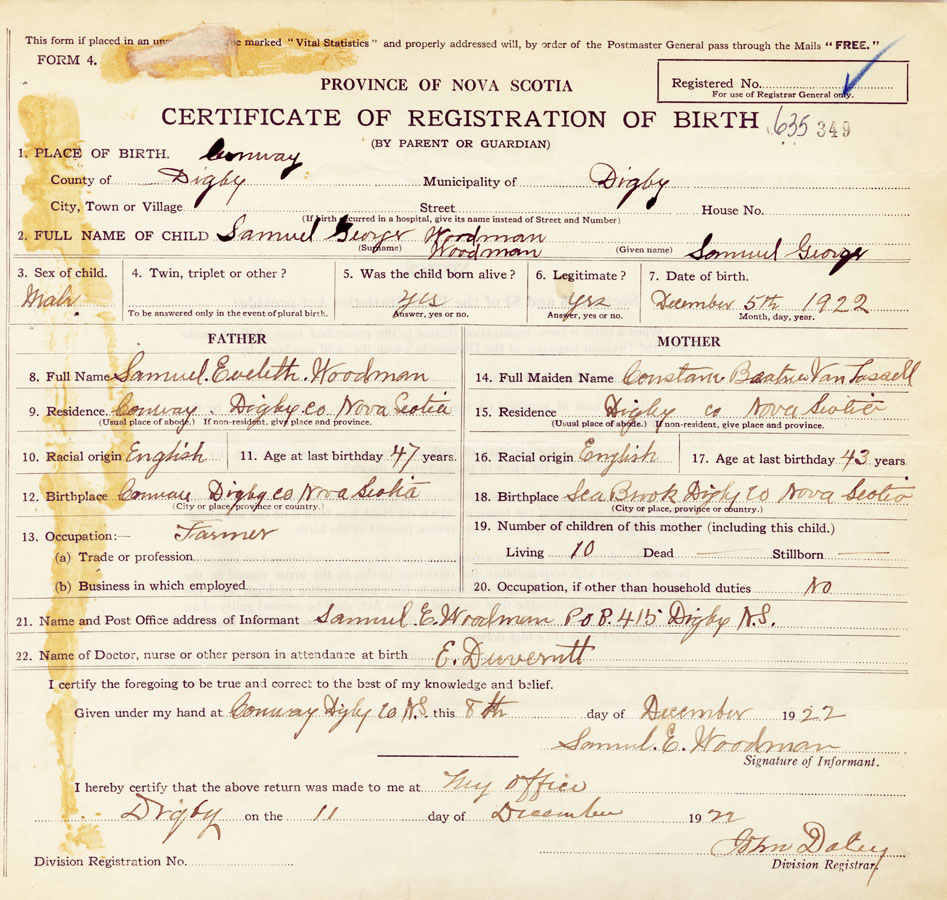 This form if placed in an marked "Vital Statistics" and properly addressed will, by order of the Postmaster General pass through the Mails "FREE."
FORM 4.
PROVINCE OF NOVA SCOTIA
Registered No.
For use of Registrar General only.
CERTIFICATE OF REGISTRATION OF BIRTH 635 349
(BY PARENT OR GUARDIAN)
1. PLACE OF BIRTH. Conway
County of Digby Municipality of Digby
City, Town or Village Street House No.
(If birth occurred in a hospital, give its name instead of Street and Number)
2. FULL NAME OF CHILD Samuel George Woodman
(Surname) Woodman (Given name) Samuel George
3. Sex of child. 4. Twin, triplet or other? 5. Was the child born alive? 6. Legitimate? 7. Date of birth.
Male yes yes December 5th 1922
To be answered only in the event of plural birth. Answer, yes or no. Answer, yes or no. Month, day, year.
FATHER MOTHER
8. Full Name Samuel. Eveleth. Woodman 14. Full Maiden Name Beatrice Van Tassell
9. Residence. Conway. Digby co Nova Scotia 15. Residence Digby co Nova Scotia
(Usual place of abode.) If non-resident, give place and province. (Usual place of abode.) If non-resident, give place and province.
10. Racial origin English 11. Age at last birthday 47 years. 16. Racial origin English 17. Age at last birthday 43 years
12. Birthplace Digby co Nova Scotia 18. Birthplace Sea Brook Digby co Nova Scotia
(City or place, province or country.) (City or place, province or country.)
13. Occupation:— Farmer 19. Number of children of this mother (including this child.)
(a) Trade or profession Living 10 Dead — Stillborn —
(b) Business in which employed 20. Occupation, if other than household duties No
21. Name and Post Office address of Informant Samuel. E. Woodman 415 Digby N.S.
22. Name of Doctor, nurse or other person in attendance at birth E.
I certify the foregoing to be true and correct to the best of my knowledge and belief.
Given under my hand at Conway Digby co N.S. this 8th day of December 1922
Samuel. E. Woodman
Signature of Informant.
I hereby certify that the above return was made to me at My office
Digby on the 11 day of December 1922
John Daley
Division Registrar.
Division Registration No.